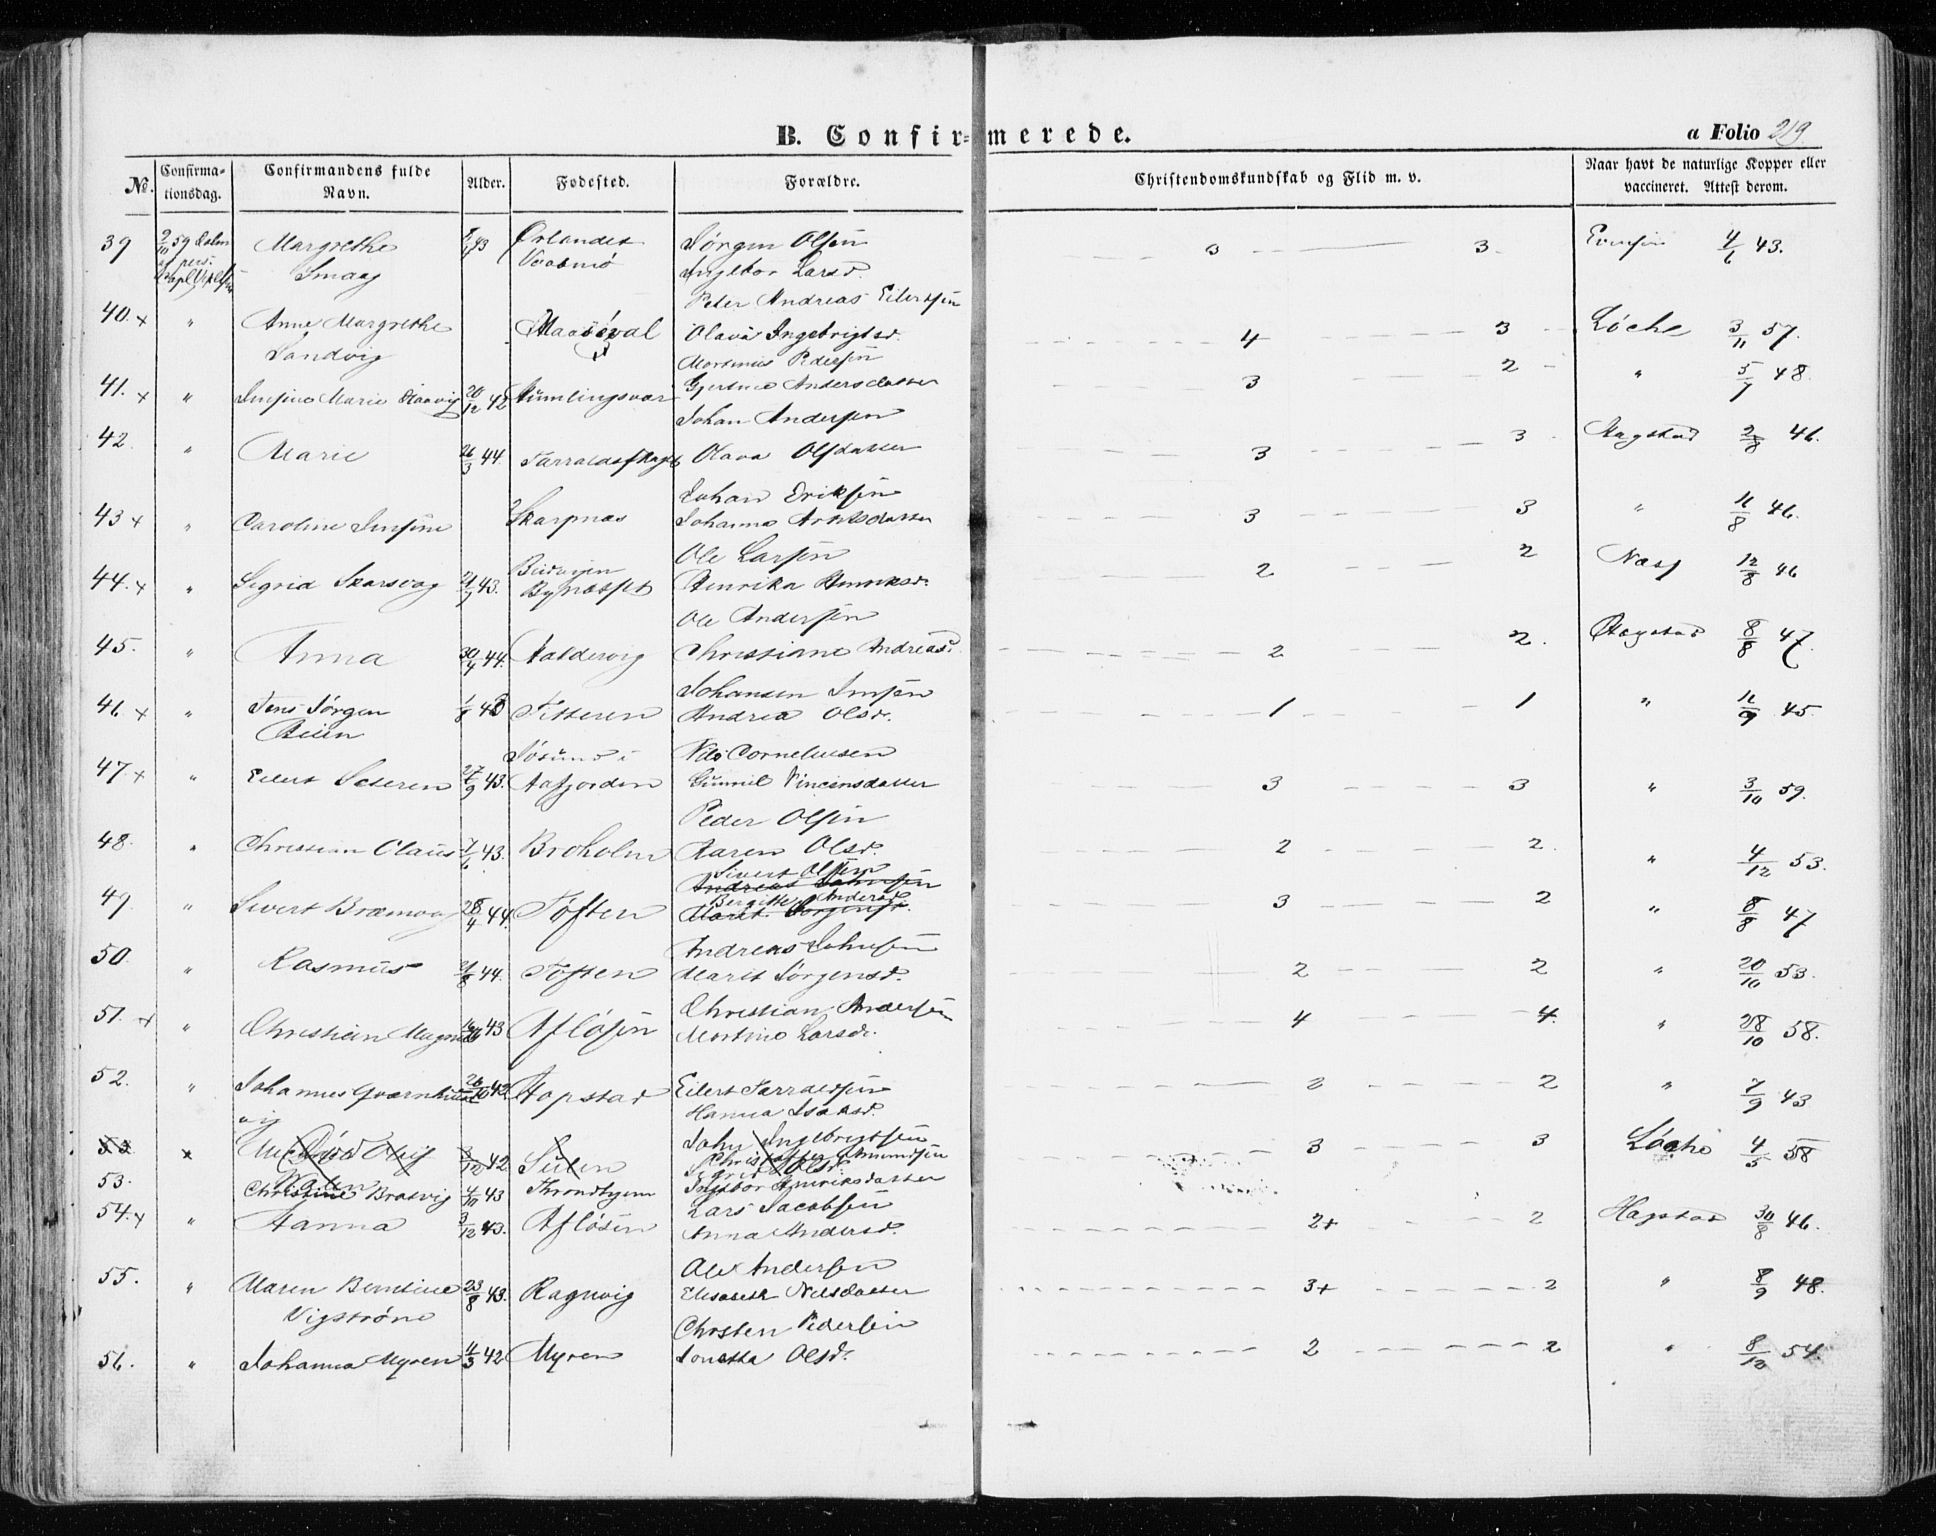 B. Confir=merede.
a Folio 219
No.
Confirma-tionsdag.
Confirmandens fulde Navn.
Alder.
Fødested.
Forældre.
Christendomskundskab og Flid m. v.
Naar havt de naturlige Kopper eller vaccineret. Attest derom.
39 2/10 59 Margrethe 43 Ørlandet Jørgen Olsen 3 3 4/6 43.
Smaag Ingebor Larsd.
Peter Andreas Eilertsen
40. x " Anne Margrethe Olava Ingebrigtsd. 4 3 Løche 3/11 57.
Sandvig
Mortinus Pedersen
41. x " Marie 20/12 42 Andersdatter 3 2 " 5/7 48.
Johan Andersen
42. " Marie 26/3 44. Olava Olsdatter 3 3 Hagstad 2/8 46.
Johan Eriksen
43 x " Caroline Skarpnæs Johanna 3 3 " 11/8 46.
Ole Larsen
44. x " Sigrid Skarsvag 43. Bynæsset Henrika Henriksd. 2 2 Næss 12/8 46
Ole Andersen
45. " Anna 30/4 44. Haldervig Christiane Andreasd. 2 2. Hagstad 8/8 47.
Johansen Jensen
46 x " Jens Jørgen 1/8 43 Titteren Andrea Olsd. 1 1 " 11/9 45.
Søsund i Nils Corneliusen
47 x " Eilert Seteren 27/9 43. Aafjorden Gunnil Vincensdatter 3 3 " 3/10 59.
Peder Olsen
48. " Christian Olaus 7/6 43. Broholm Karen Olsd. 2 2. " 4/12 53.
Sivert Olsen
Andreas Johnsen
Bergitte Andersd.
49 " Sivert Bræmvog 28/4 44. Toften Marit Jørgensd. 3 2 " 8/8 47
Andreas Johnsen
50. " Rasmus 21/8 44. Toften Marit Jørgensd. 2 2 " 20/10 53.
Christian Andersen
51. x " Christian Magnus 43 Afløsen Martine Larsd. 4 4. " 28/10 58.
52. " Johannes 26/10 42 Hopstad Eilert Tarraldsen 2 2 " 7/9 43
vig Hanna Isaksd.
John Ingebrigtsen
53 x 3/12 42 Sulen Olsd. 3 3 Løche 4/5 58
Christopher Amundsen
53. Christine Bratvig 4/10 43 Throndhjem Ingebor Henriksdatter
Lars Jacobsen
54. x " Hanna 3/12 43. Afløsen Anna Andersd. 2+ 2 Hagstad 30/8 46.
Ole Andersen
55. " Maren Berntine 23/8 43. Ragnvig Elisabeth Nilsdatter 3+ 2 " 8/9 48.
Vigstrøne
Chrsten Pedersen
56. " Johanna Myren 4/3 42 Myren Jonetta Olsd. 2 2 " 8/12 54.